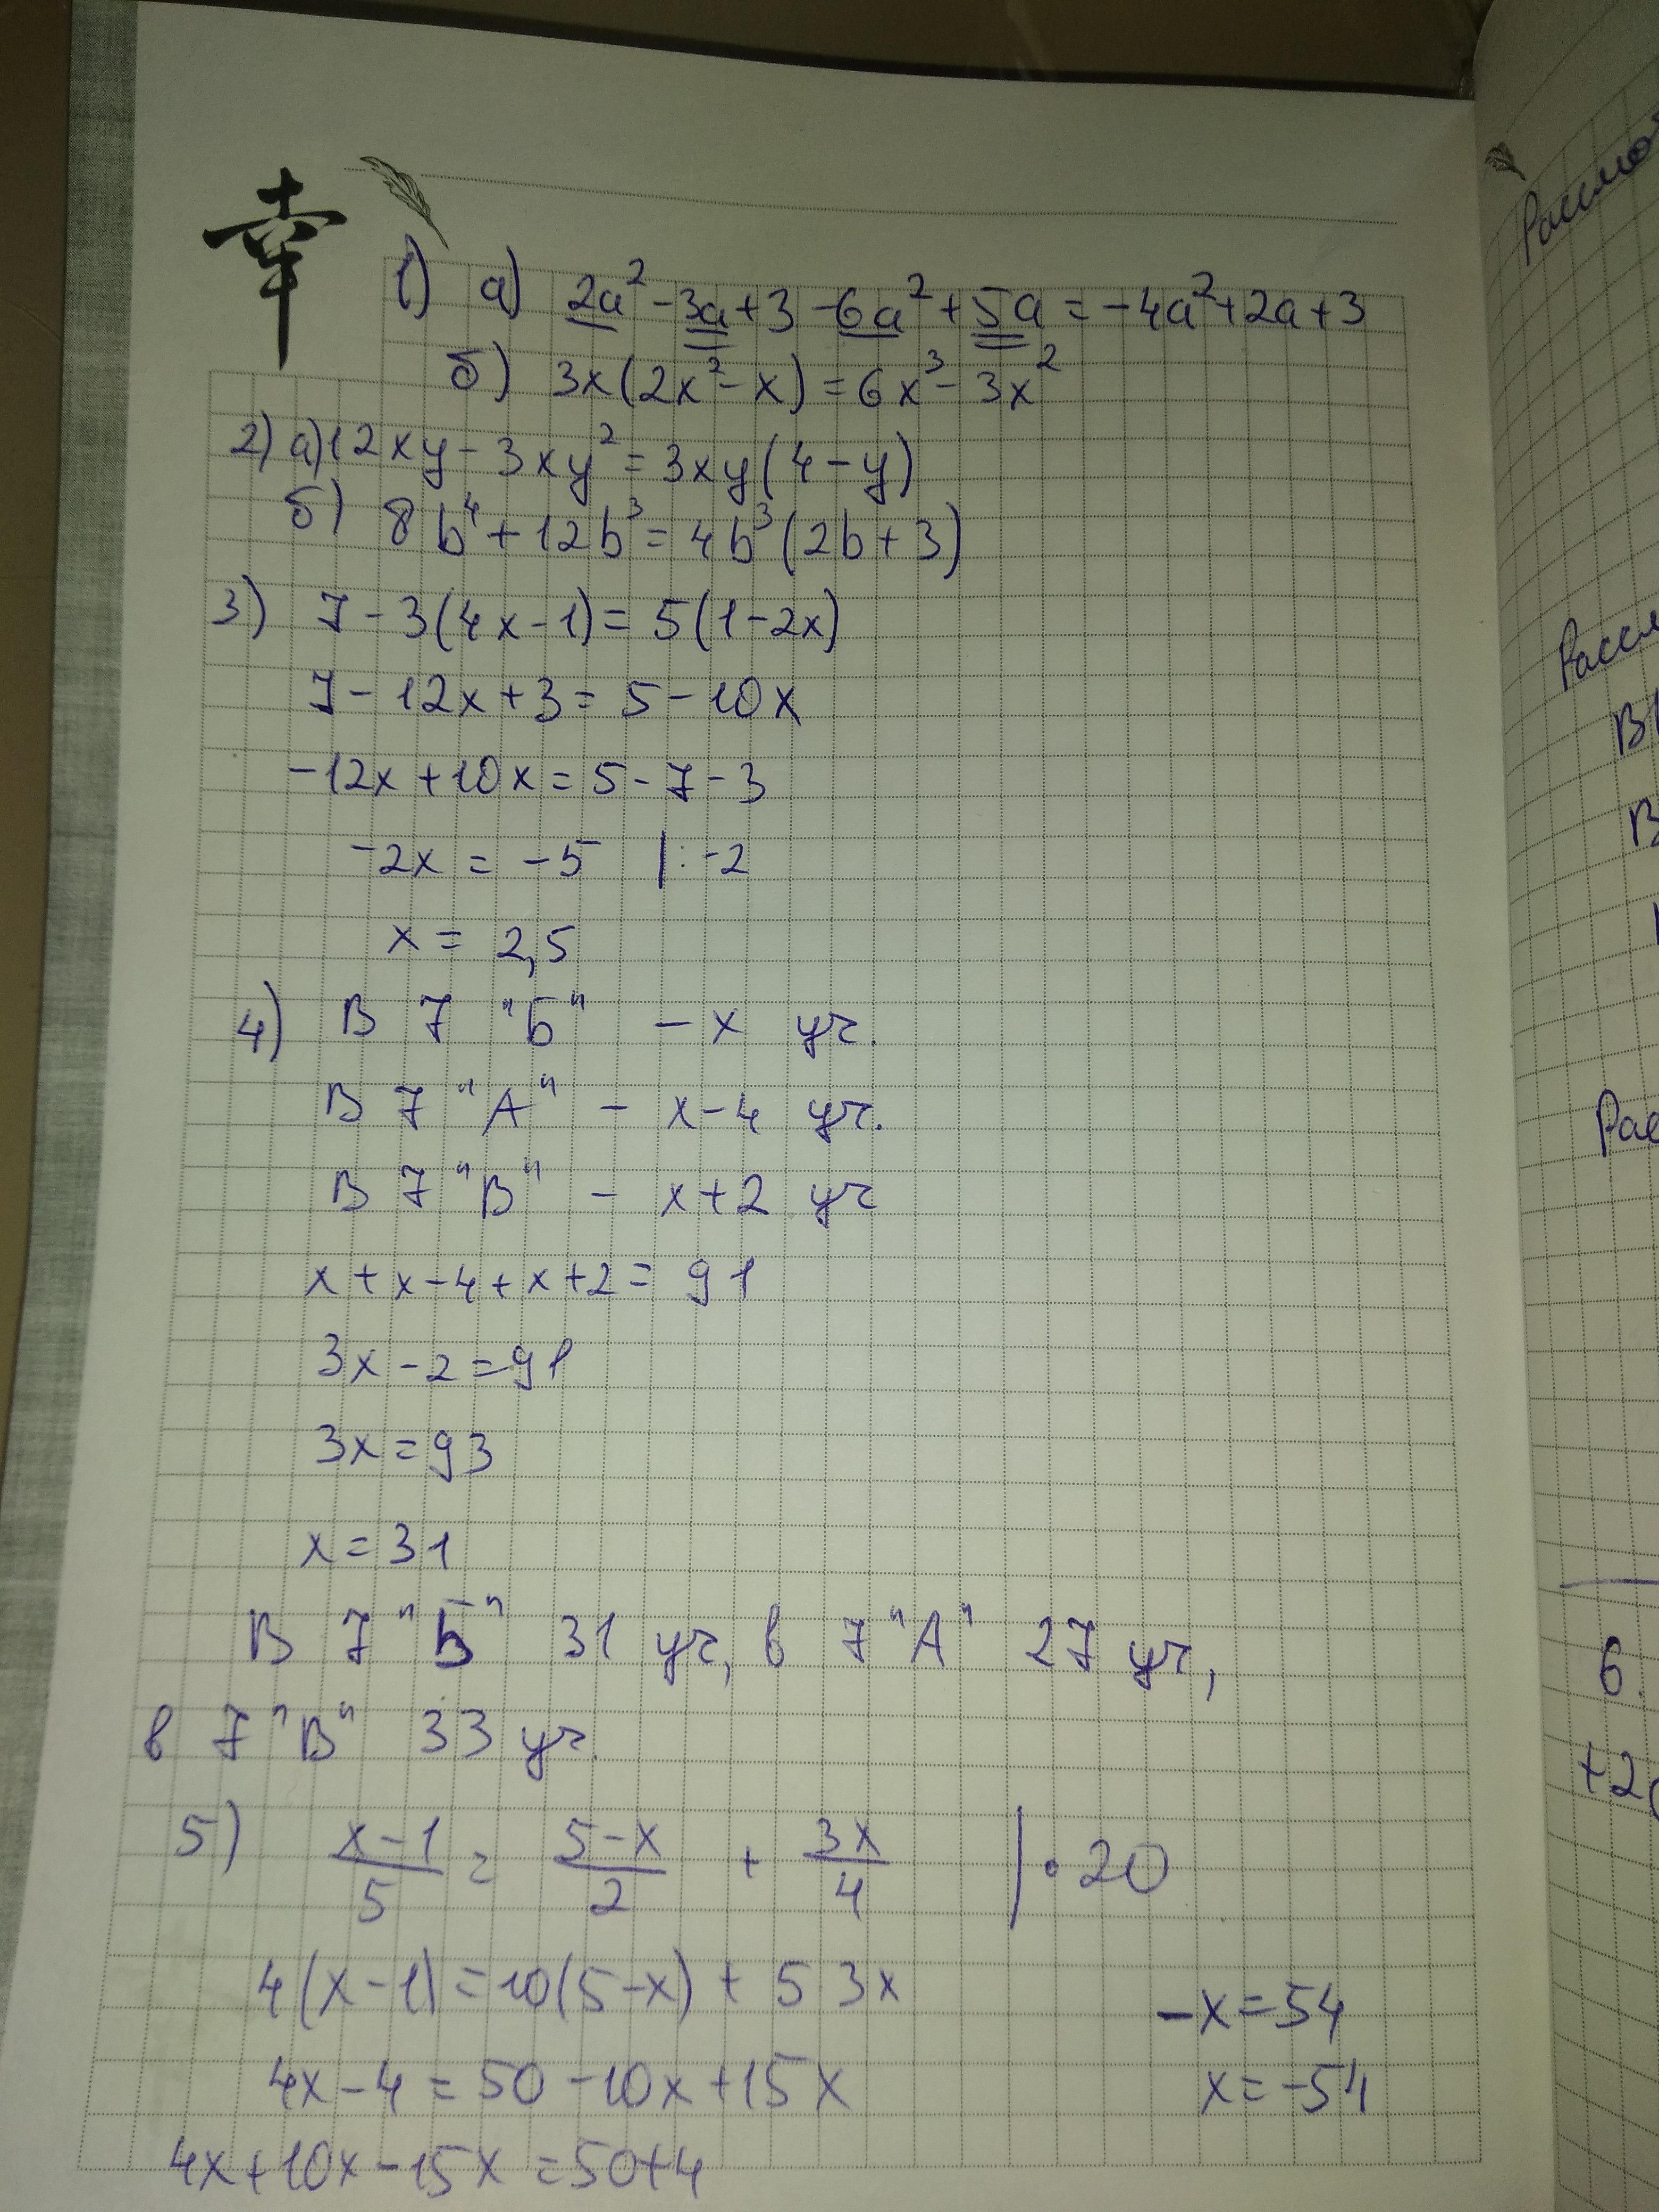 幸
1) a) 2a² - 3a + 3 - 6a² + 5a = -4a² + 2a + 3
б) 3x(2x² - x) = 6x³ - 3x²
2) a) 12xy - 3xy² = 3xy(4 - y)
б) 8b⁴ + 12b³ = 4b³(2b + 3)
3) 7 - 3(4x - 1) = 5(1 - 2x)
7 - 12x + 3 = 5 - 10x
-12x + 10x = 5 - 7 - 3
-2x = -5 | : -2
x = 2,5
4) В 7 "Б" - x уч.
В 7 "А" - x - 4 уч.
В 7 "В" - x + 2 уч
x + x - 4 + x + 2 = 91
3x - 2 = 91
3x = 93
x = 31
В 7 "Б" 31 уч, в 7 "А" 27 уч,
в 7 "В" 33 уч.
5) (x - 1)/5 = (5 - x)/2 + 3x/4 | · 20
4(x - 1) = 10(5 - x) + 5 3x
4x - 4 = 50 - 10x + 15x
4x + 10x - 15x = 50 + 4
-x = 54
x = -54
6.
+2(